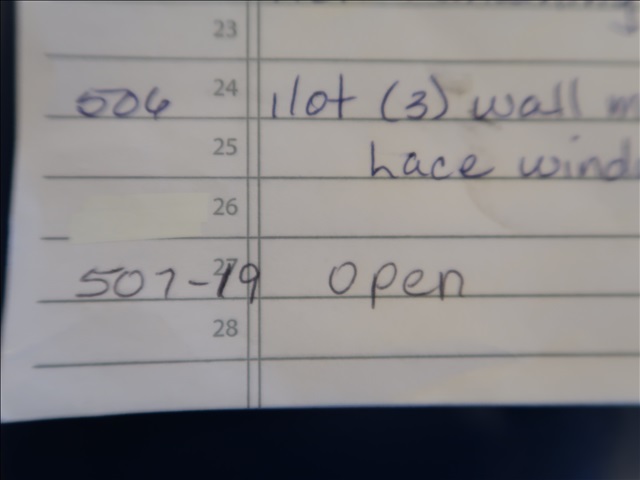 23
506 24 1 lot (3) wall
25 hace
26
507-19 27 Open
28